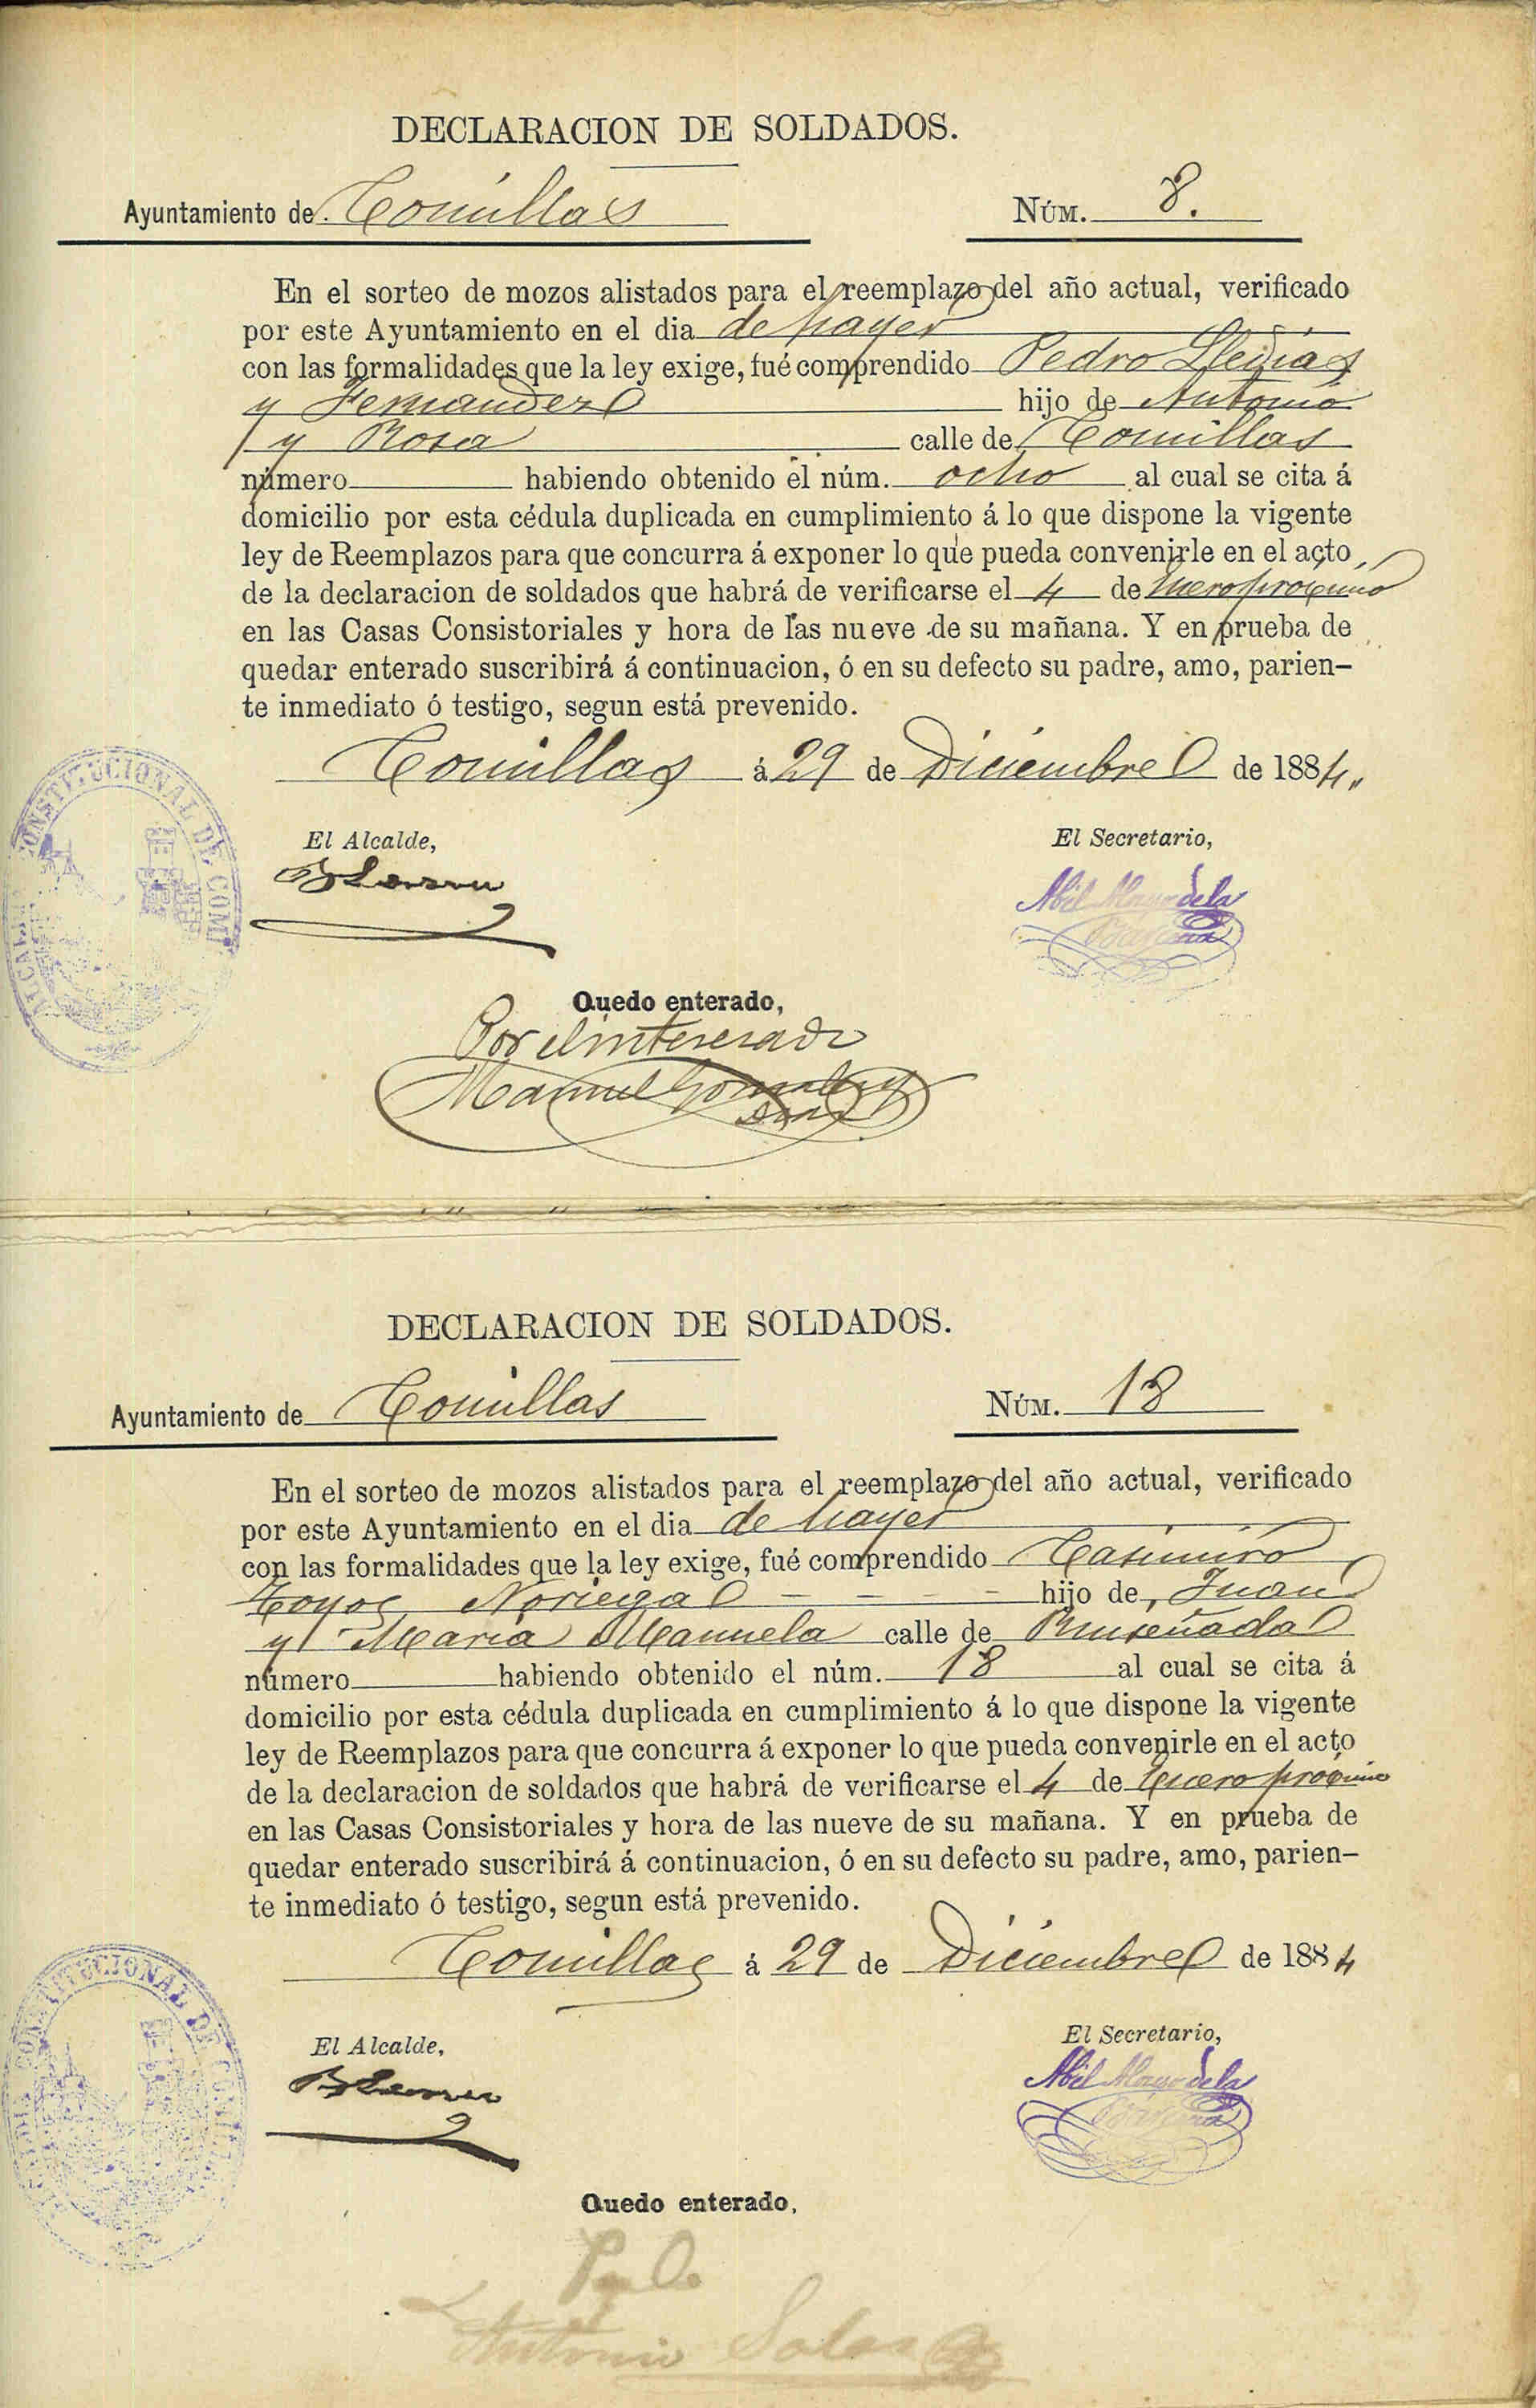 DECLARACION DE SOLDADOS.
Ayuntamiento de Comillas NÚM. 8.
En el sorteo de mozos alistados para el reemplazo del año actual, verificado
por este Ayuntamiento en el dia de hayer
con las formalidades que la ley exige, fué comprendido Pedro Lledias
y Fernandez hijo de Antonio
y Rosa calle de Comillas
número habiendo obtenido el núm. ocho al cual se cita á
domicilio por esta cédula duplicada en cumplimiento á lo que dispone la vigente
ley de Reemplazos para que concurra á exponer lo que pueda convenirle en el acto
de la declaracion de soldados que habrá de verificarse el 4 de Enero proximo
en las Casas Consistoriales y hora de las nueve de su mañana. Y en prueba de
quedar enterado suscribirá á continuacion, ó en su defecto su padre, amo, parien-
te inmediato ó testigo, segun está prevenido.
Comillas á 29 de Diciembre de 1884.
CONSTITUCIONAL DE COMI
El Alcalde, El Secretario,
Abil Mayo de la
Quedo enterado,
Por el interesado
Manuel Gonzalez
Diaz
DECLARACION DE SOLDADOS.
Ayuntamiento de Comillas NÚM. 18
En el sorteo de mozos alistados para el reemplazo del año actual, verificado
por este Ayuntamiento en el dia de hayer
con las formalidades que la ley exige, fué comprendido Casimiro
Hoyos Noriega hijo de Juan
y Maria Manuela calle de Ruiseñada
número habiendo obtenido el núm. 18 al cual se cita á
domicilio por esta cédula duplicada en cumplimiento á lo que dispone la vigente
ley de Reemplazos para que concurra á exponer lo que pueda convenirle en el acto
de la declaracion de soldados que habrá de verificarse el 4 de Enero proximo
en las Casas Consistoriales y hora de las nueve de su mañana. Y en prueba de
quedar enterado suscribirá á continuacion, ó en su defecto su padre, amo, parien-
te inmediato ó testigo, segun está prevenido.
Comillas á 29 de Diciembre de 1884
El Alcalde, El Secretario,
Abil Mayo de la
Quedo enterado,
P. O.
Antonio Salas